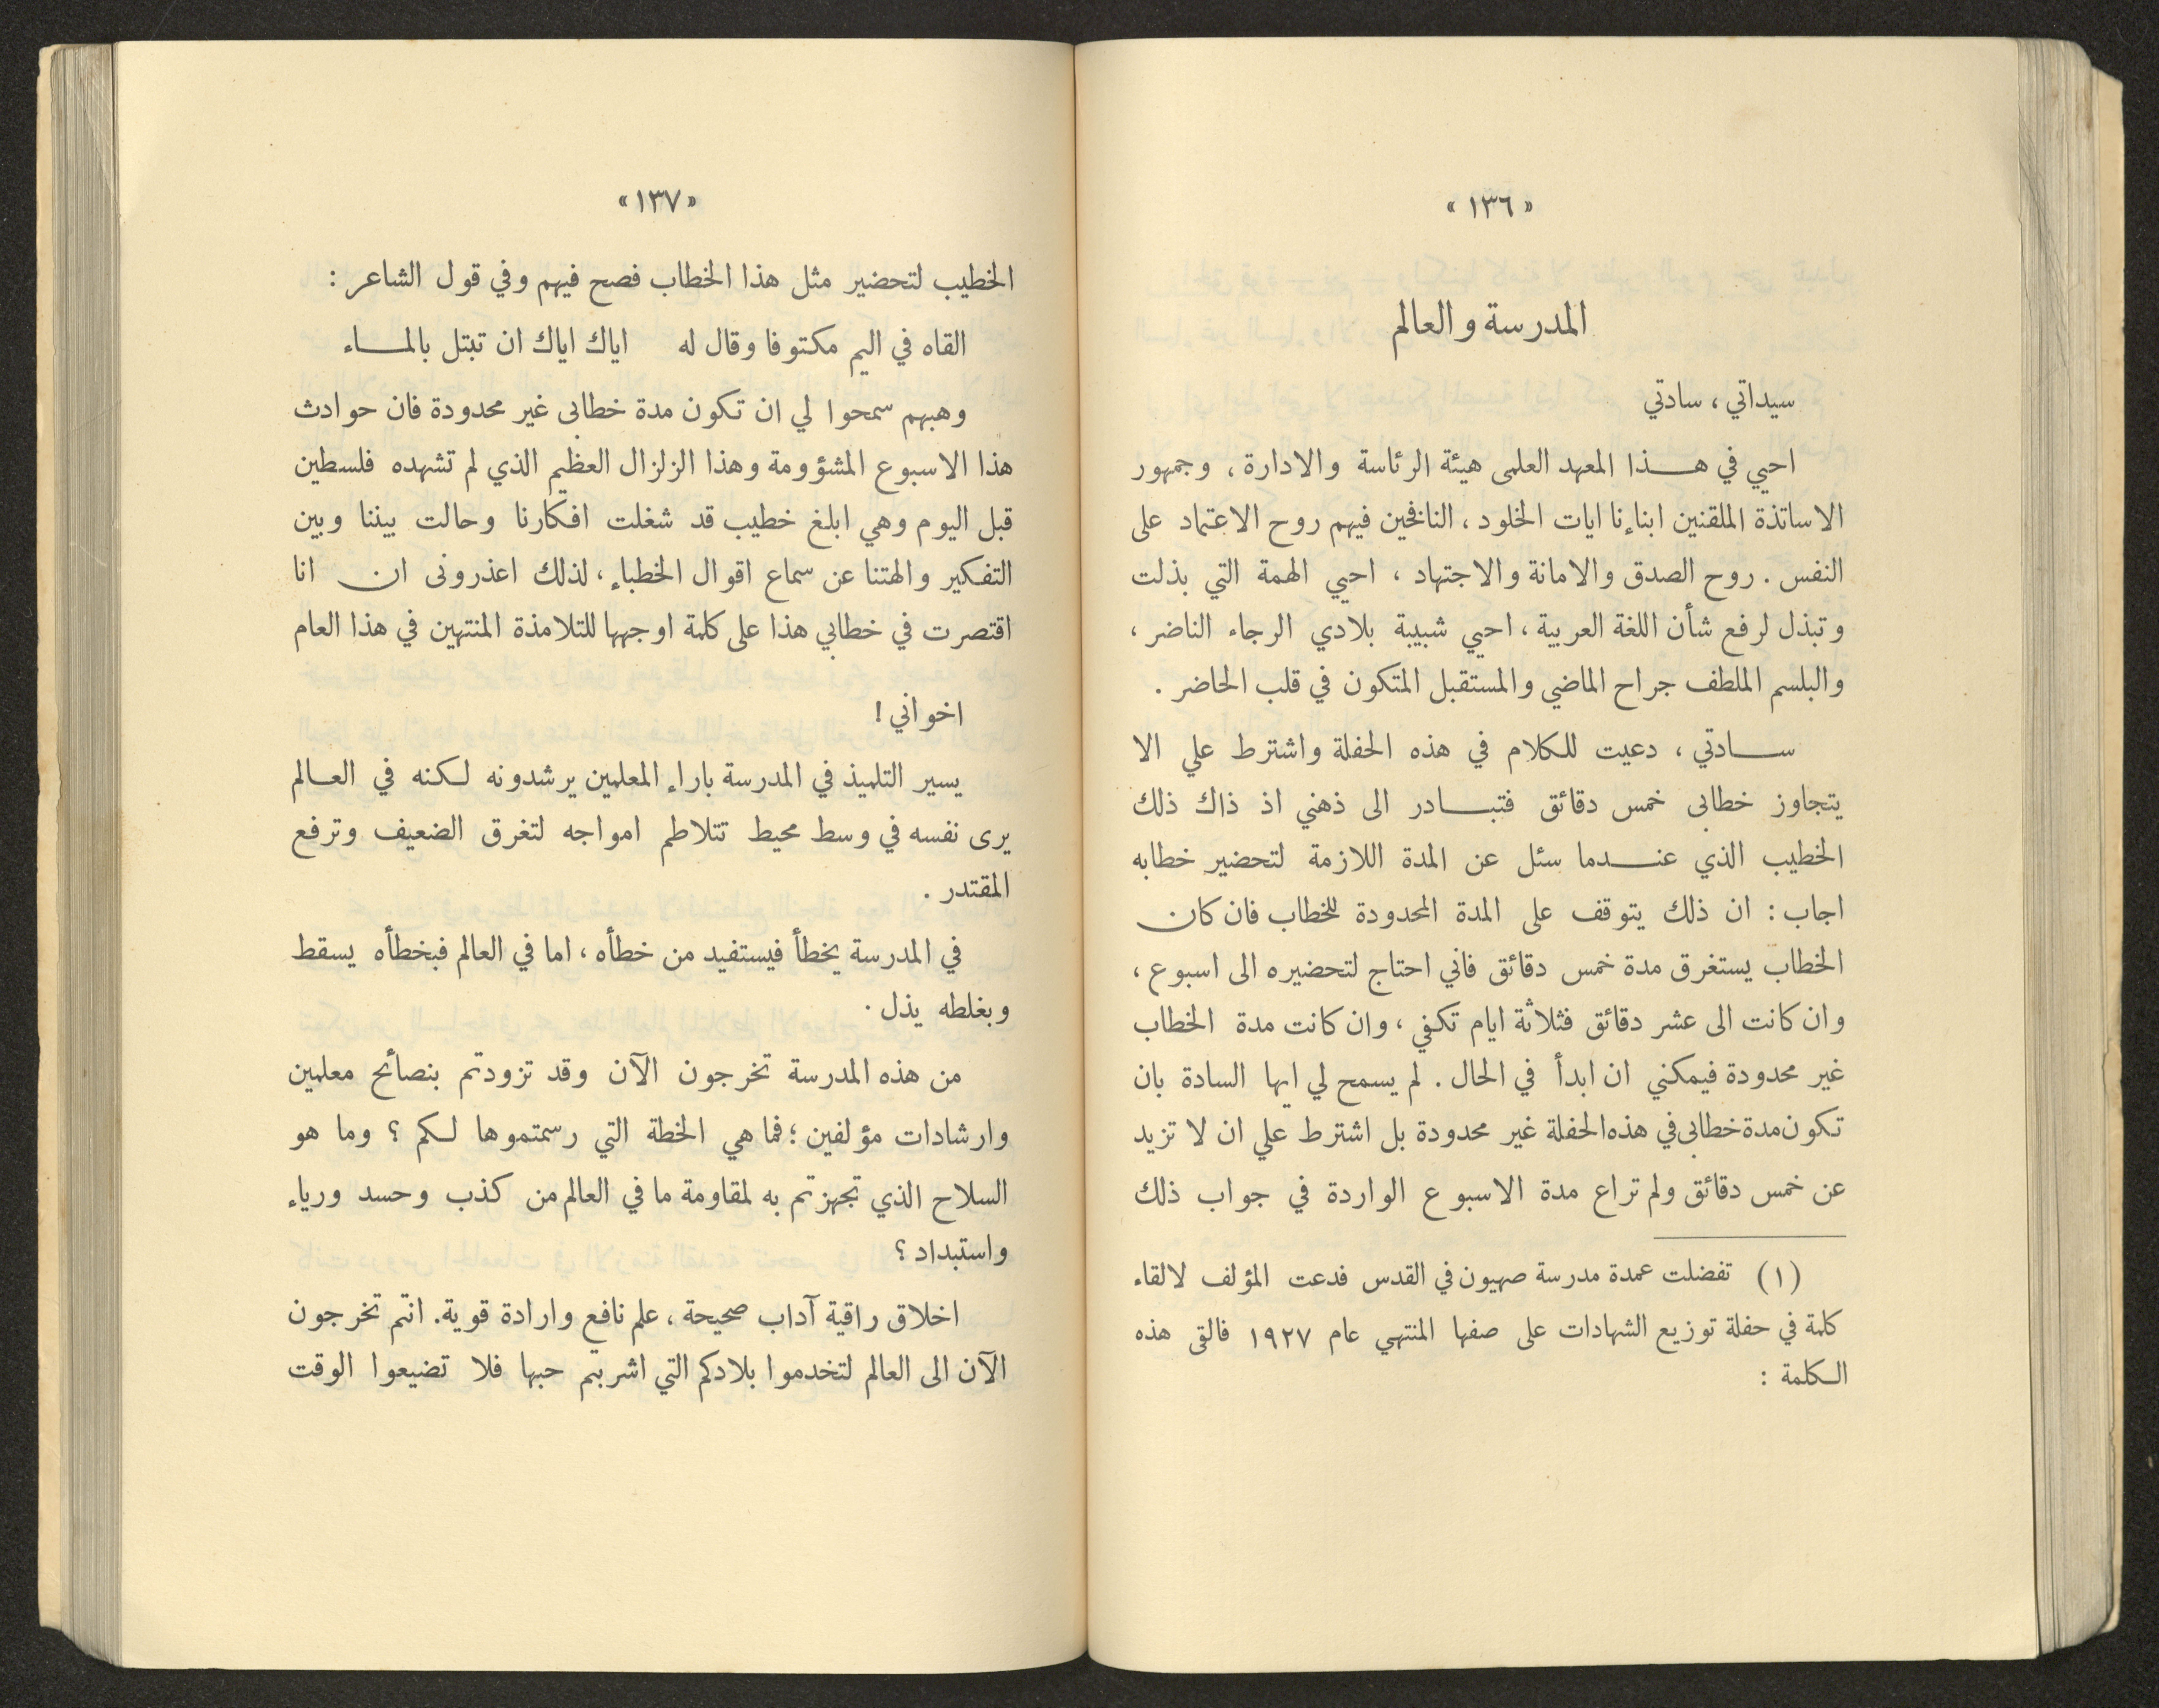 « ١٣٦ »
المدرسة والعالم
سيداتي ، سادتي
احيي في هـــذا المعهد العلمى هيئة الرئاسة والادارة ، وجمهور
الاساتذة الملقنين ابناءنا ايات الخلود ، النافخين فيهم روح الاعتماد على
النفس . روح الصدق والامانة والاجتهاد ، احيي الهمة التي بذلت
وتبذل لرفع شأن اللغة العربية ، احيي شبيبة بلادي الرجاء الناضر ،
والبلسم الملطف جراح الماضي والمستقبل المتكون في قلب الحاضر .
ســـادتي ، دعيت للكلام في هذه الحفلة واشترط علي الا
يتجاوز خطابى خمس دقائق فتبـــادر الى ذهني اذ ذاك ذلك
الخطيب الذي عنـــدما سئل عن المدة اللازمة لتحضير خطابه
اجاب : ان ذلك يتوقف على المدة المحدودة للخطاب فان كان
الخطاب يستغرق مدة خمس دقائق فاني احتاج لتحضيره الى اسبوع ،
وان كانت الى عشر دقائق فثلاثة ايام تكفي ، وان كانت مدة الخطاب
غير محدودة فيمكني ان ابدأ في الحال . لم يسمح لي ايها السادة بان
تكون مدة خطابى في هذه الحفلة غير محدودة بل اشترط علي ان لا تزيد
عن خمس دقائق ولم تراع مدة الاسبوع الواردة في جواب ذلك
(١) تفضلت عمدة مدرسة صهيون في القدس فدعت المؤلف لالقاء
كلمة في حفلة توزيع الشهادات على صفها المنتهي عام ١٩٢٧ فالقى هذه
الكلمة :
« ١٣٧ »
الخطيب لتحضير مثل هذا الخطاب فصح فيهم وفي قول الشاعر :
القاه في اليم مكتوفا وقال له اياك اياك ان تبتل بالمـــاء
وهبهم سمحوا لي ان تكون مدة خطابى غير محدودة فان حوادث
هذا الاسبوع المشؤومة وهذا الزلزال العظيم الذي لم تشهده فلسطين
قبل اليوم وهي ابلغ خطيب قد شغلت افكارنا وحالت بيننا وبين
التفكير والهتنا عن سماع اقوال الخطباء ، لذلك اعذرونى ان انا
اقتصرت في خطابي هذا على كلمة اوجهها للتلامذة المنتهين في هذا العام
اخواني !
يسير التلميذ في المدرسة باراء المعلمين يرشدونه لكنه في العـالم
يرى نفسه في وسط محيط تتلاطم امواجه لتغرق الضعيف وترفع
المقتدر .
في المدرسة يخطأ فيستفيد من خطأه ، اما في العالم فبخطأه يسقط
وبغلطه يذل .
من هذه المدرسة تخرجون الآن وقد تزودتم بنصائح معلمين
وارشادات مؤلفين ؛ فما هي الخطة التي رسمتموها لكم ؟ وما هو
السلاح الذي تجهزتم به لمقاومة ما في العالم من كذب وحسد ورياء
واستبداد ؟
اخلاق راقية آداب صحيحة ، علم نافع وارادة قوية . انتم تخرجون
الآن الى العالم لتخدموا بلادكم التي اشربتم حبها فلا تضيعوا الوقت